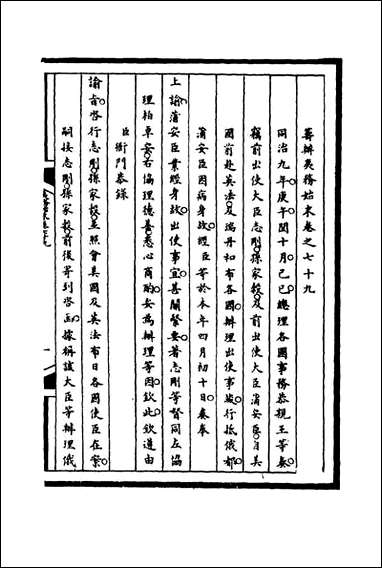 籌辦夷務始末卷之七十九
同治九年庚午閏十月己巳總理各國事務恭親王等奏
竊前出使大臣志剛孫家穀及前出使大臣蒲安臣自美
國前赴英法及瑞丹和布各國辦理出使事竣行抵俄都
蒲安臣因病身故經臣等於本年四月初十日奏奉
上諭蒲安臣業經身故出使事宜善關緊要著志剛等督同左協
理柏卓安右協理德善悉心商酌妥為辦理等因欽此欽遵由
臣衙門恭錄
諭旨咨行志剛孫家穀並照會美國及英法布日各國使臣在案
嗣接志剛孫家穀前後寄到咨函據稱該大臣等辦理俄